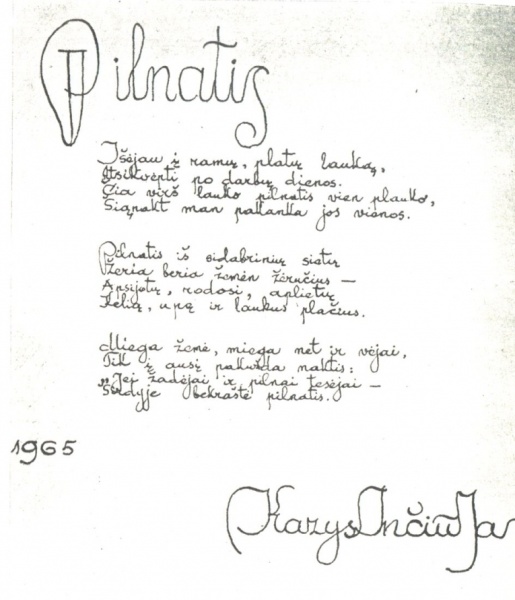 Pilnatis
Išėjau į ramų, platų lauką,
Atsikvėpti po darbų dienos.
Čia virš lauko pilnatis vien plauko,
Šiąnakt man pakanka jos vienos.
Pilnatis iš sidabrinių sietų
Žeria beria žemėn žėručius —
Apsijotų, rodosi, aplietų
Kelią, upę ir laukus plačius.
Miega žemė, miega net ir vėjai,
Tik į ausį pakužda naktis:
„Jei žadėjai ir pilnai tesėjai —
Širdyje bekraštė pilnatis.
1965
Kazys